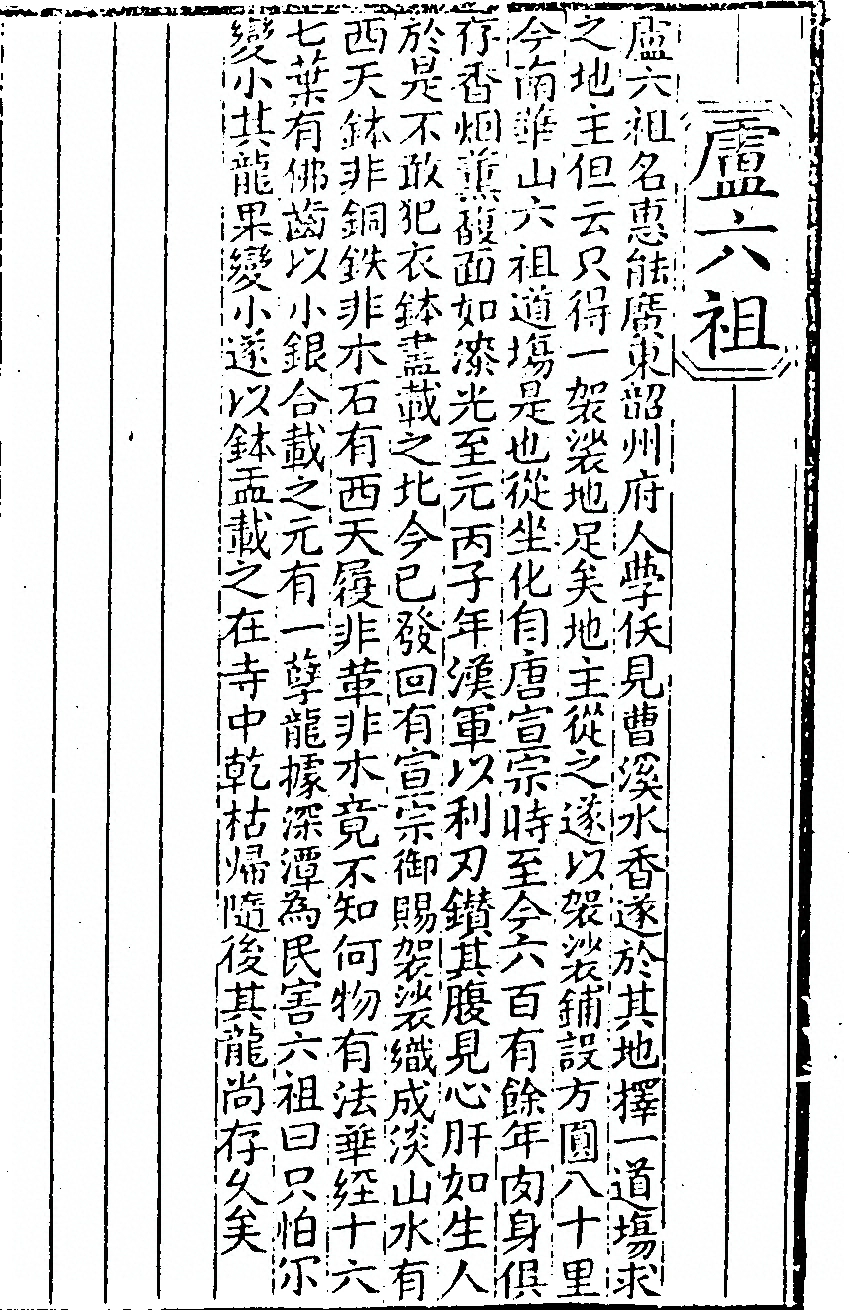 盧六祖
盧六祖名惠能廣東韶州府人學佛見曹溪水香遂於其地擇一道塲求
之地主但云只得一袈裟地足矣地主從之遂以袈裟鋪設方圓八十里
今南華山六祖道塲是也從坐化自唐宣宗時至今六百有餘年肉身俱
存香烟薰馥面如漆光至元丙子年漢軍以利刃鑚其腹見心肝如生人
於是不敢犯衣鉢盡載之北今已發回有宣宗御賜袈裟織成淡山水有
西天鉢非銅鉄非木石有西天履非革非木竟不知何物有法華経十六
七葉有佛齒以小銀合載之元有一孽龍據深潭為民害六祖曰只怕尔
變小其龍果變小遂以鉢盂載之在寺中乾枯帰隨後其龍尚存久矣